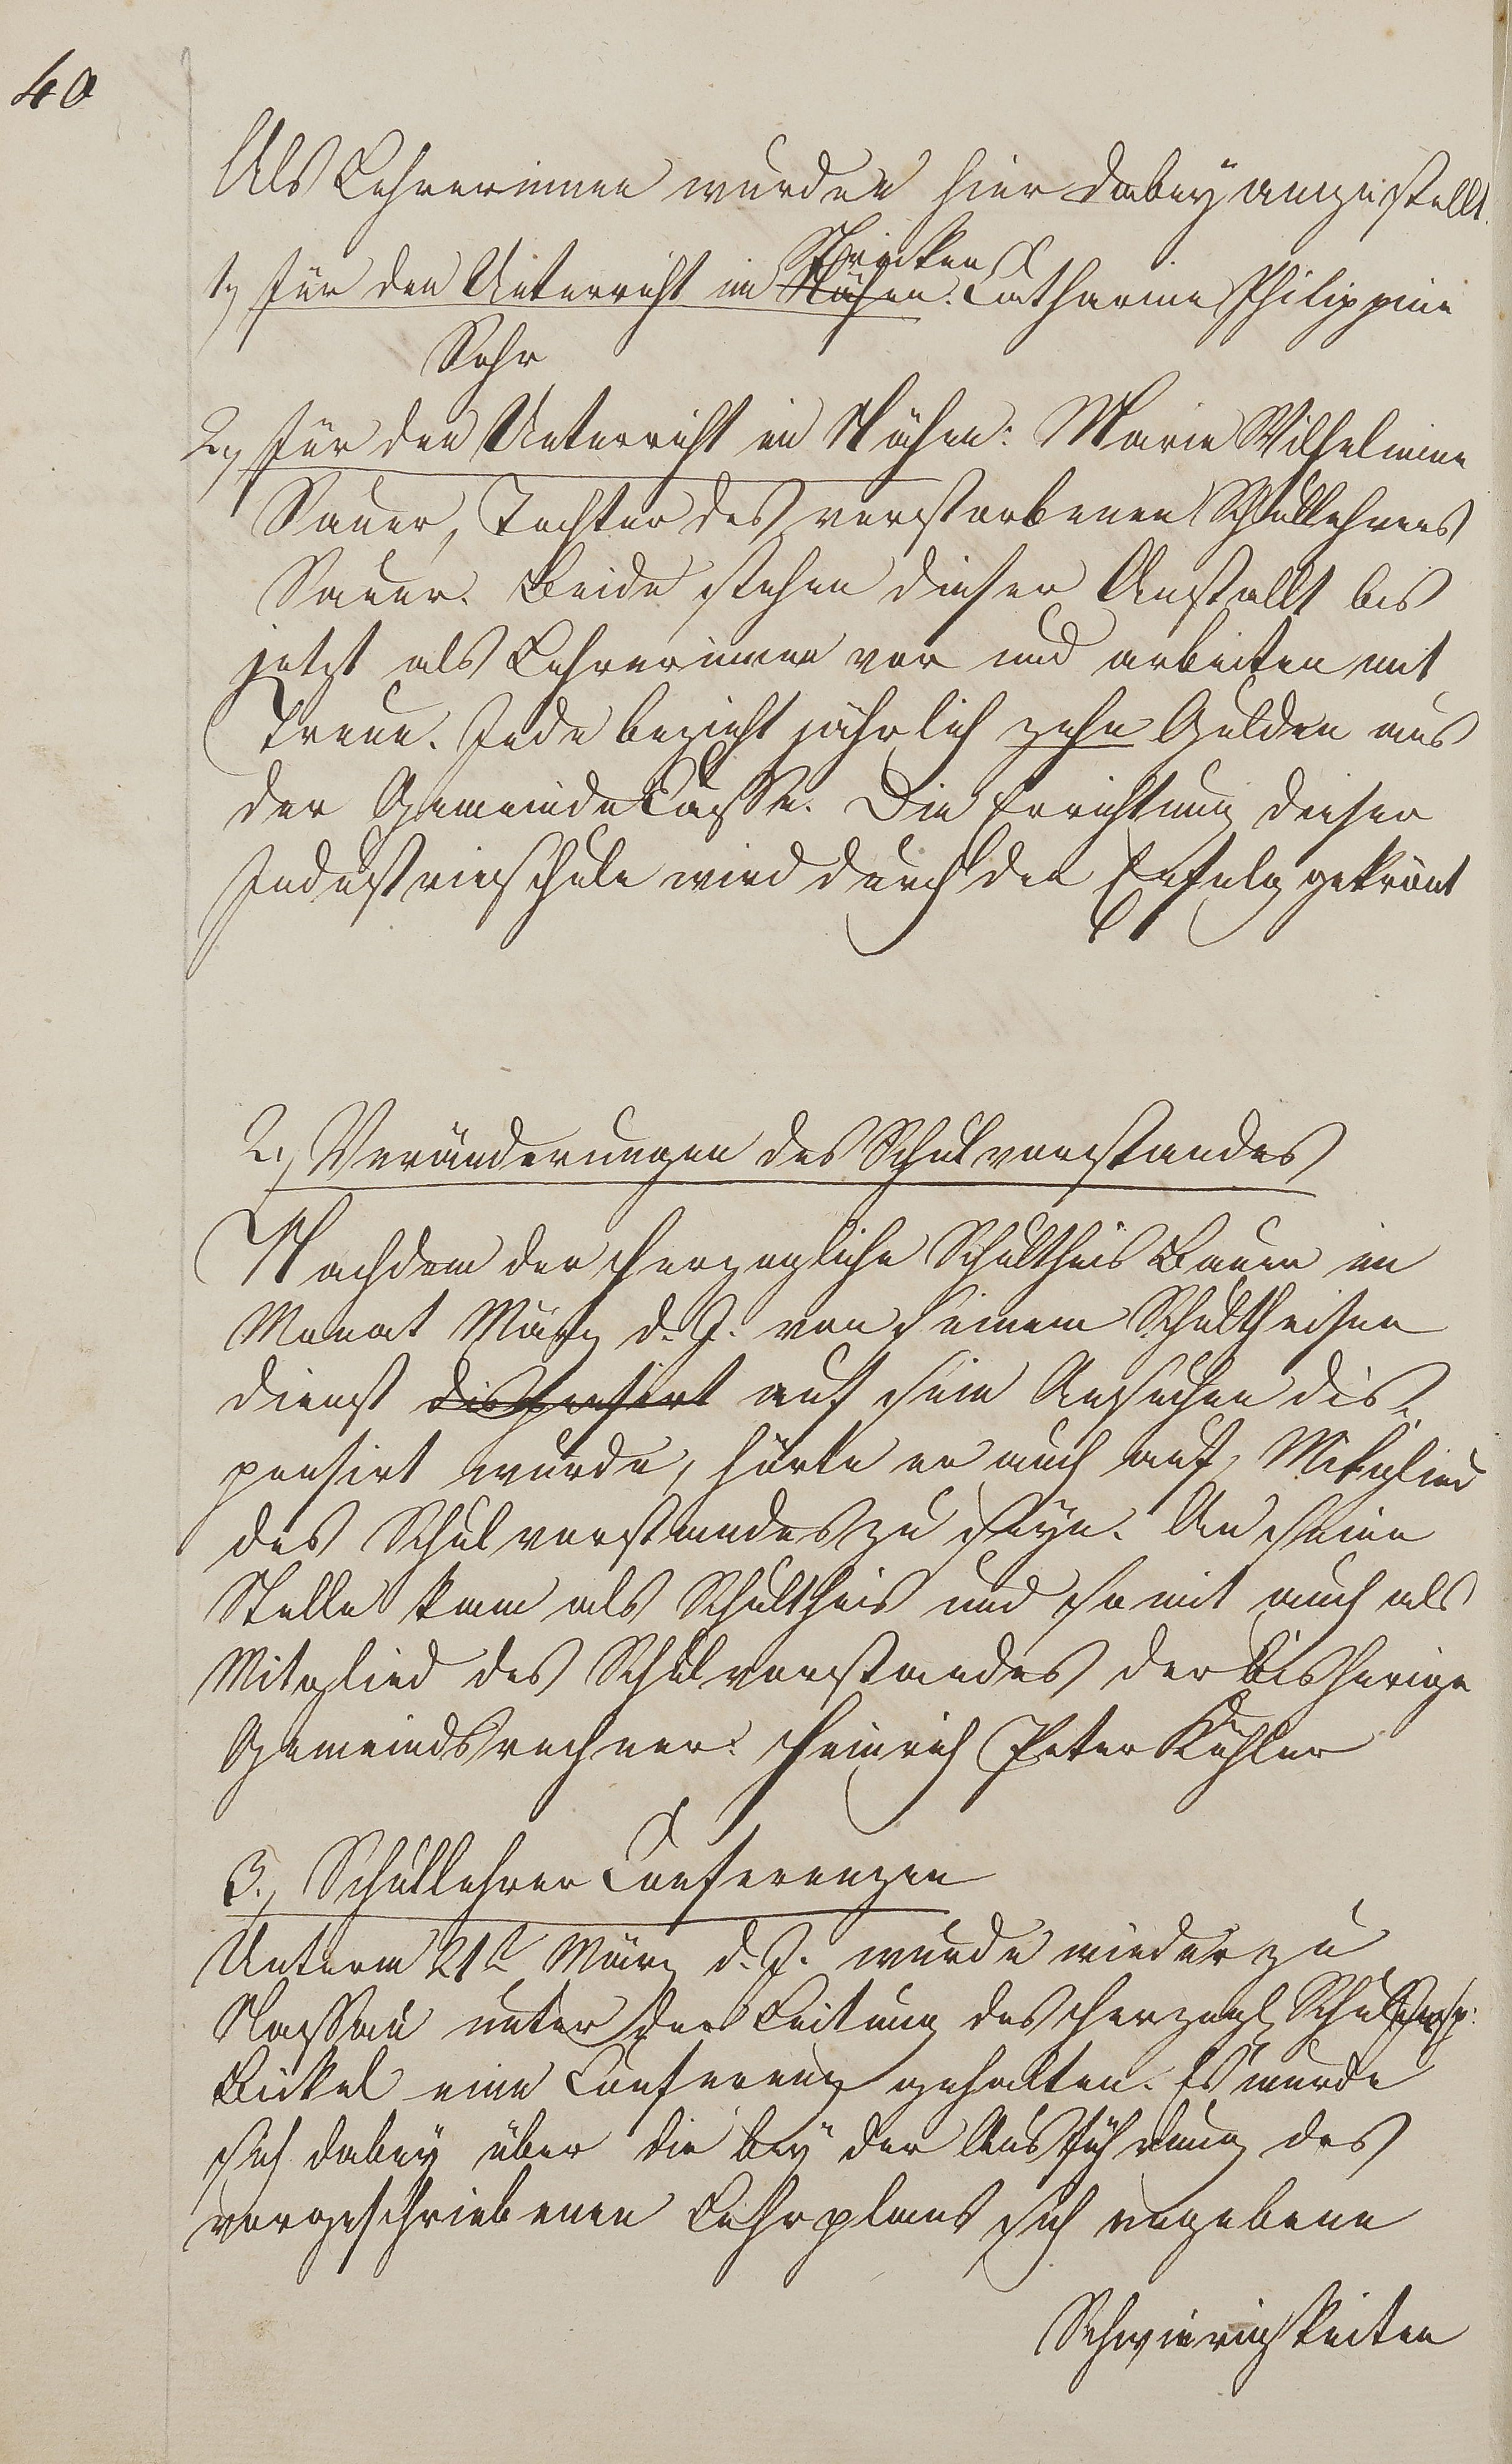 40
Als Lehrerinnen wurden hier dabey angestellt.
Stricken
1, für den Unterricht im Nähen: Catharine Philippine
Sehr
2, für den Unterricht im Nähen: Marie Wilhelmine
Sauer, Tochter des verstorbenen Schullehrers
Sauer. Beide stehen dieser Anstallt bis
jetzt als Lehrerinnen vor und arbeiten mit
Treue. Jede bezieht jährlich zehn Gulden aus
der Gemeinde Casse. Die Errichtung dieser
Industrieschule wird durch den Erfolg gekrönt
2., Veränderungen des Schulvorstandes
Nachdem der Herzogliche Schultheis Bauer im
Monat März d. J. von seinem Schultheisen
dienst dispensirt auf sein Ansuchen dis-
pensirt wurde, hörte er auch auf, Mitglied
des Schulvorstandes zu seyn. An seine
Stelle kam als Schultheis und somit auch als
Mitglied des Schulvorstandes der bisherige
Gemeindsrechner: Heinrich Peter Köhler
3., Schullehrer Conferenzen
Unterm 21t März d. J. wurde wieder zu
Nassau unter der Leitung des Herzogl. Schulinsp:
Bickel eine Conferenz gehalten. Es wurde
sich dabey über die bey der Ausführung des
vorgeschriebenen Lehrplans sich ergebene
Schwierigkeiten